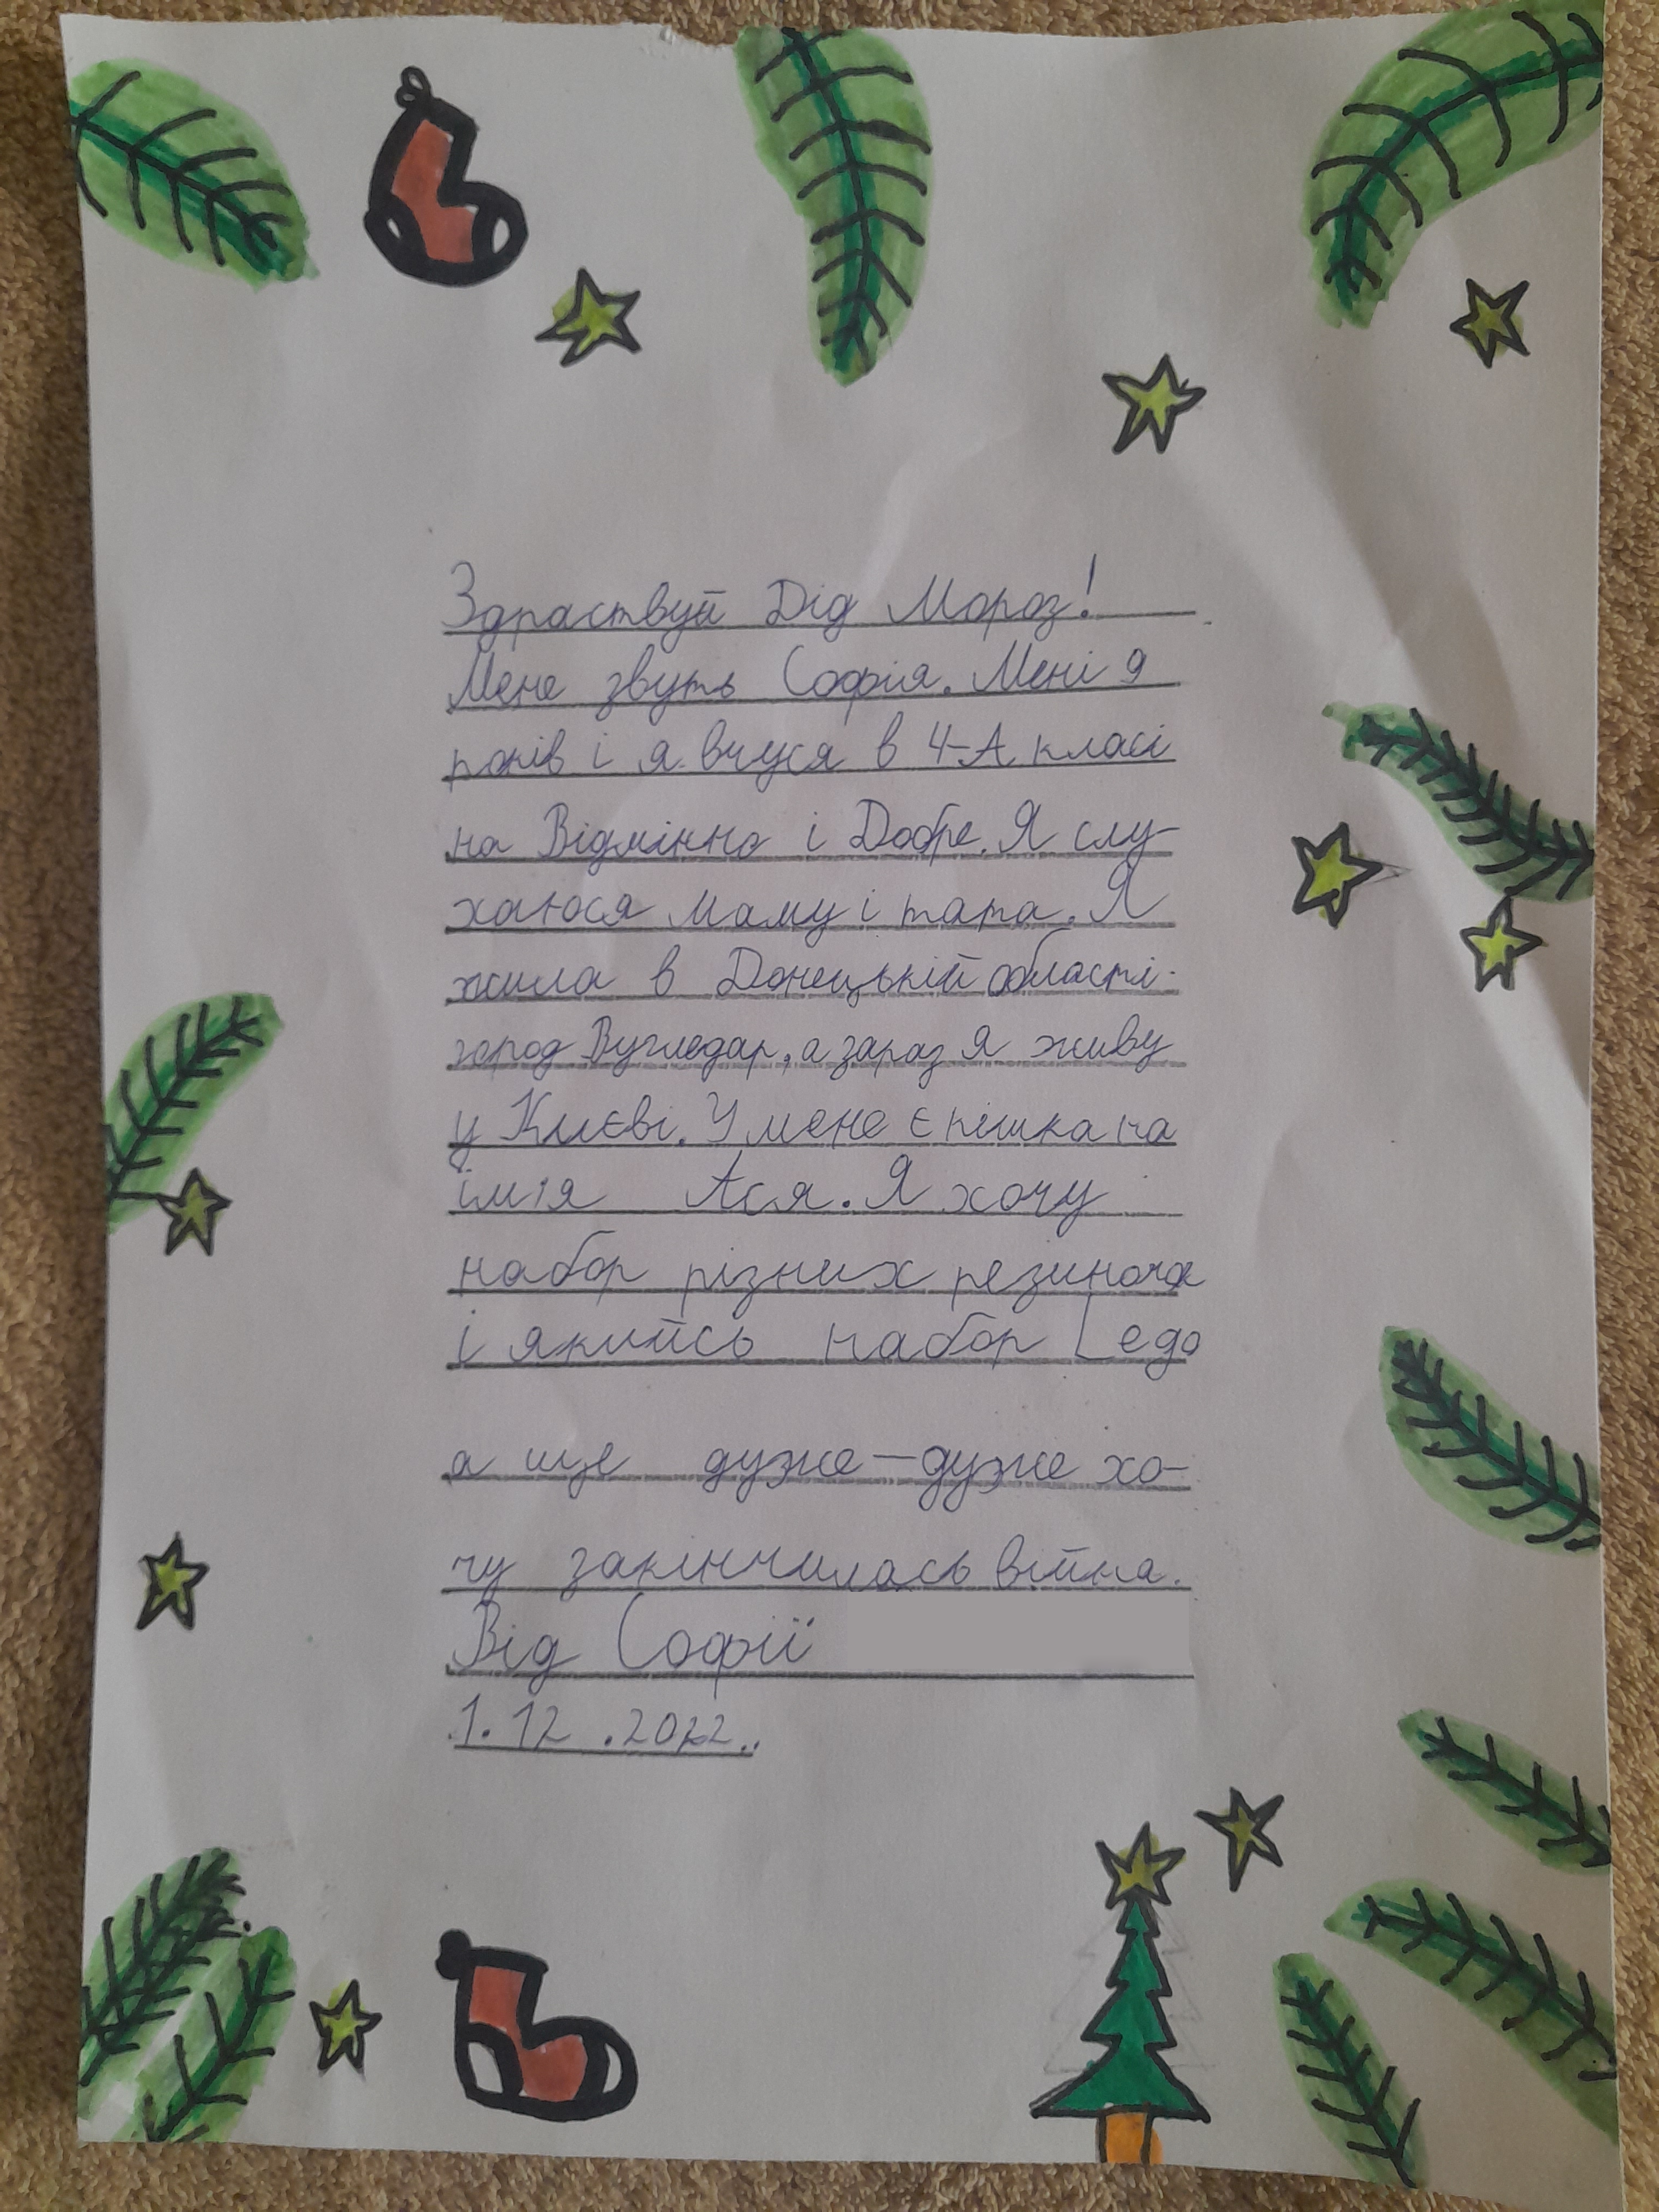 Здраствуй Дід Мороз!
Мене звуть Софія. Мені 9
років і я вчуся в 4-А класі
на Відмінно і Добре. Я слу-
хаюся маму і тата. Я
жила в Донецькій області
город Вугледар, а зараз я живу
у Києві. У мене є кішка на
імʼя Ася. Я хочу
набор різних резиночок
і якийсь набор Lego
а ще дуже-дуже хо-
чу закінчилась війна.
Від Софії
1.12.2022..